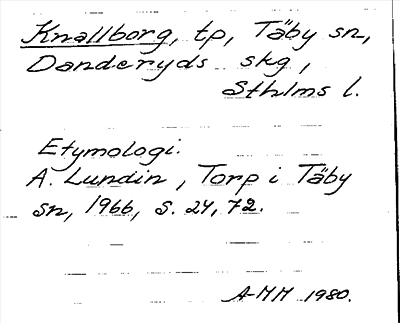 Knallborg, tp, Täby sn,
Danderyds skg,
Sthlms l.
Etymologi:
A. Lundin, Torp i Täby
sn, 1966, s. 24, 72.
A-MM 1980.